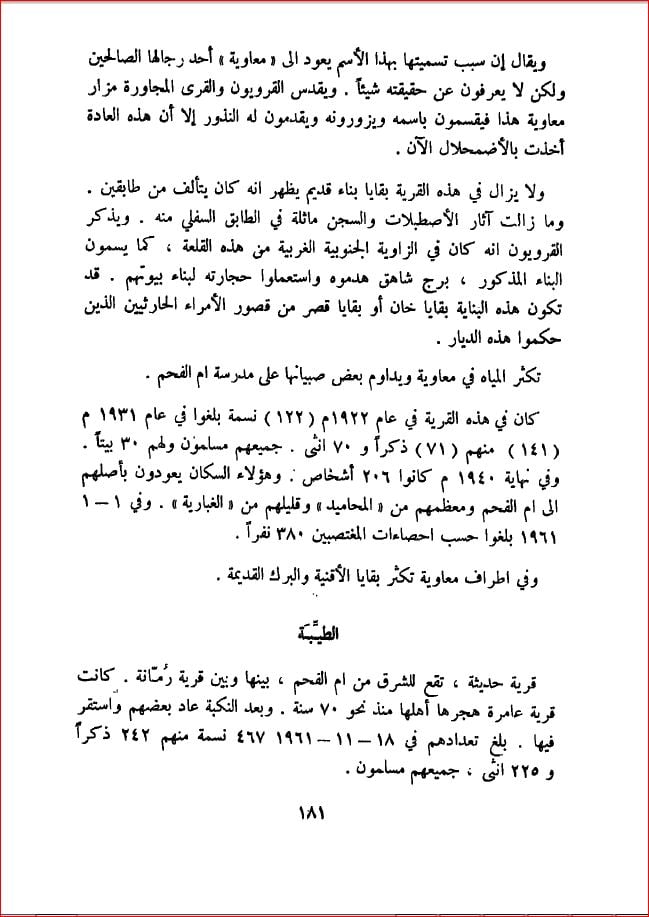 ويقال إن سبب تسميتها بهذا الأسم يعود الى « معاوية » أحد رجالها الصالحين
ولكن لا يعرفون عن حقيقته شيئاً . ويقدس القرويون والقرى المجاورة مزار
معاوية هذا فيقسمون باسمه ويزورونه ويقدمون له النذور إلا أن هذه العادة
أخذت بالأضمحلال الآن .
ولا يزال في هذه القرية بقايا بناء قديم يظهر انه كان يتألف من طابقين .
وما زالت آثار الأصطبلات والسجن ماثلة في الطابق السفلي منه . ويذكر
القرويون انه كان في الزاوية الجنوبية الغربية من هذه القلعة ، كما يسمون
البناء المذكور ، برج شاهق هدموه واستعملوا حجارته لبناء بيوتهم . قد
تكون هذه البناية بقايا خان أو بقايا قصر من قصور الأمراء الحارثيين الذين
حكموا هذه الديار .
تكثر المياه في معاوية ويداوم بعض صبيانها على مدرسة ام الفحم .
كان في هذه القرية في عام ١٩٢٢م (١٢٢) نسمة بلغوا في عام ١٩٣١ م
(١٤١) منهم (٧١) ذكراً و ٧٠ انثى . جميعهم مسلمون ولهم ٣٠ بيتاً .
وفي نهاية ١٩٤٠ م كانوا ٢٠٦ أشخاص . وهؤلاء السكان يعودون بأصلهم
الى ام الفحم ومعظمهم من « المحاميد » وقليلهم من « الغبارية » . وفي ١ – ١
١٩٦١ بلغوا حسب احصاءات المغتصبين ٣٨٠ نفراً .
وفي اطراف معاوية تكثر بقايا الأقنية والبرك القديمة .
الطيِّبَة
قرية حديثة ، تقع للشرق من ام الفحم ، بينها وبين قرية رُمّانة . كانت
قرية عامرة هجرها أهلها منذ نحو ٧٠ سنة . وبعد النكبة عاد بعضهم واستقر
فيها . بلغ تعدادهم في ١٨ – ١١ – ١٩٦١ ٤٦٧ نسمة منهم ٢٤٢ ذكراً
و ٢٢٥ انثى ، جميعهم مسلمون .
١٨١